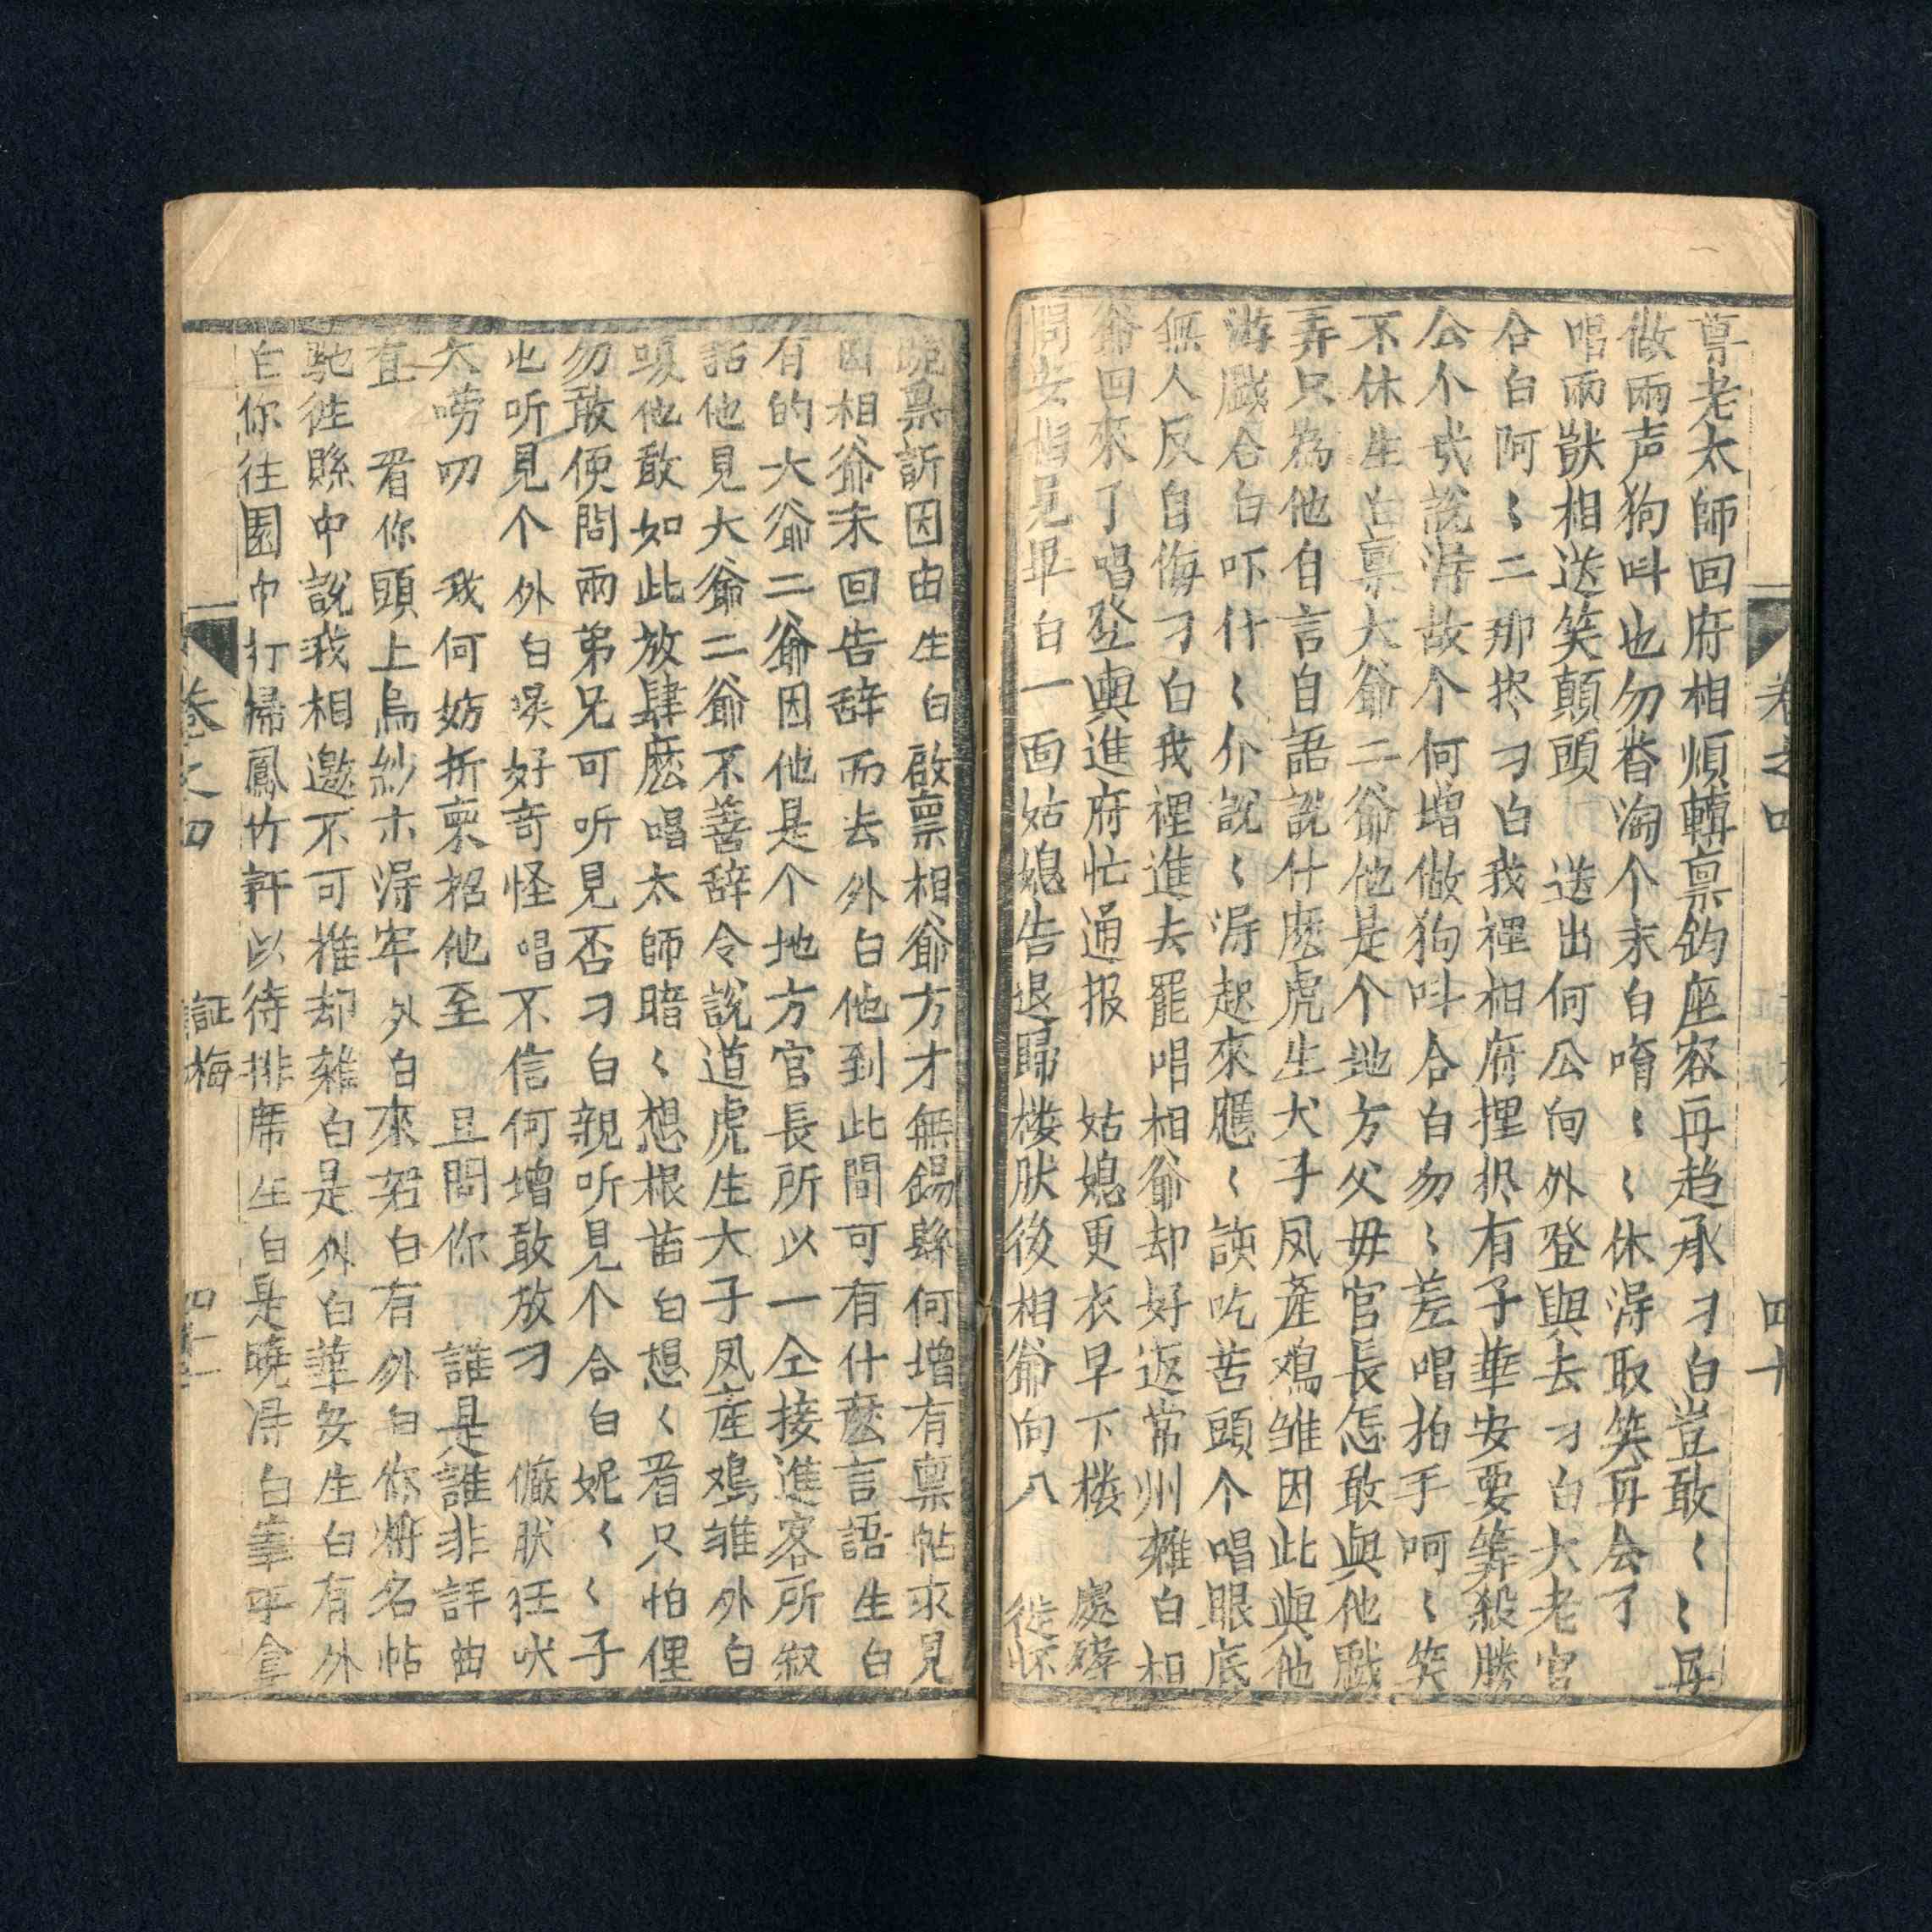 卷之四
四十
尊老太師回府相煩轉禀鈞座容再趋承刁白豈敢〻〻再
做兩声狗呌也勿沓淘个末白唷〻〻休淂取笑再会了
唱兩獣相送笑顛頭 送出何公向外登輿去刁白大老官
合白阿〻二那拶刁白我裡相府捚抧有子華安要筭殺勝
公个哉說淂故个何增做狗呌合白勿〻差唱拍手呵〻笑
不休生白禀大爺二爺他是个地方父毋官長怎敢與他戲
弄只為他自言自語說什麽虎生犬子凤產鳮雏因此與他
游戲合白吓什〻介說〻淂起來應〻該吃苦頭个唱眼底
無人反自侮刁白我裡進去罷唱相爺却好返常州雜白相
爺回來了唱登輿進府忙通报 姑媳更衣早下楼 處
問安 見畢白一面姑媳告退歸楼肰後相爺向八
曉禀訴因由生白啟禀相爺方才無錫縣何增有禀帖求見
因相爺未回告辞而去外白他到此間可有什麽言語生白
有的大爺二爺因他是个地方官長所以一仝接進客所叙
話他見大爺二爺不善辞令說道虎生大子凤產鳮雏外白
嗄他敢如此放肆麽唱太師暗〻想根苗白想〻看只怕俚
勿敢便問兩弟兄可听見否刁白親听見个合白妮〻〻子
也听見个外白唉好奇怪唱不信何增敢放刁 儼肰狂吠
太嘮叨 我何妨折柬招他至 且問你 誰是誰非評曲
直 看你頭上烏紗木淂牢外白來若白有外白你將名帖
馳徃縣中說我相邀不可推却雜白是外白華安生白有外
白你往園中打掃鳳竹軒以待排席生白是曉淂白筆乎拿
卷之四
証梅
四十一